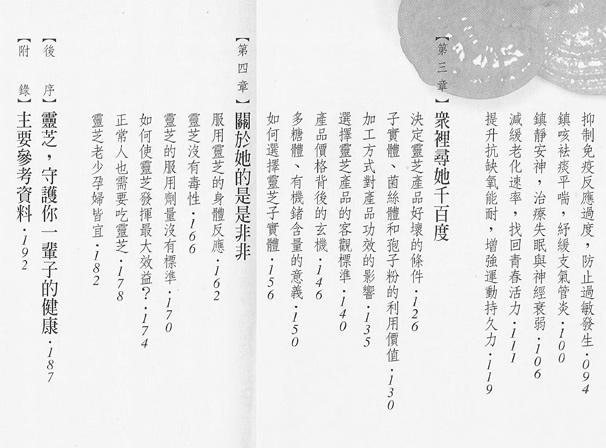 抑制免疫反應過度，防止過敏發生・094
鎮咳袪痰平喘，紓緩支氣管炎・100
鎮靜安神，治療失眠與神經衰弱・106
減緩老化速率，找回青春活力・111
提升抗缺氧能耐，增強運動持久力・119
【第三章】眾裡尋她千百度
決定靈芝產品好壞的條件・126
子實體、菌絲體和孢子粉的利用價值・130
加工方式對產品功效的影響・135
選擇靈芝產品的客觀標準・140
產品價格背後的玄機・146
多糖體、有機鍺含量的意義・150
如何選擇靈芝子實體・156
【第四章】關於她的是是非非
服用靈芝的身體反應・162
靈芝沒有毒性・166
靈芝的服用劑量沒有標準・170
如何使靈芝發揮最大效益？・174
正常人也需要吃靈芝・178
靈芝老少孕婦皆宜・182
【後序】靈芝，守護你一輩子的健康・187
【附錄】主要參考資料・192